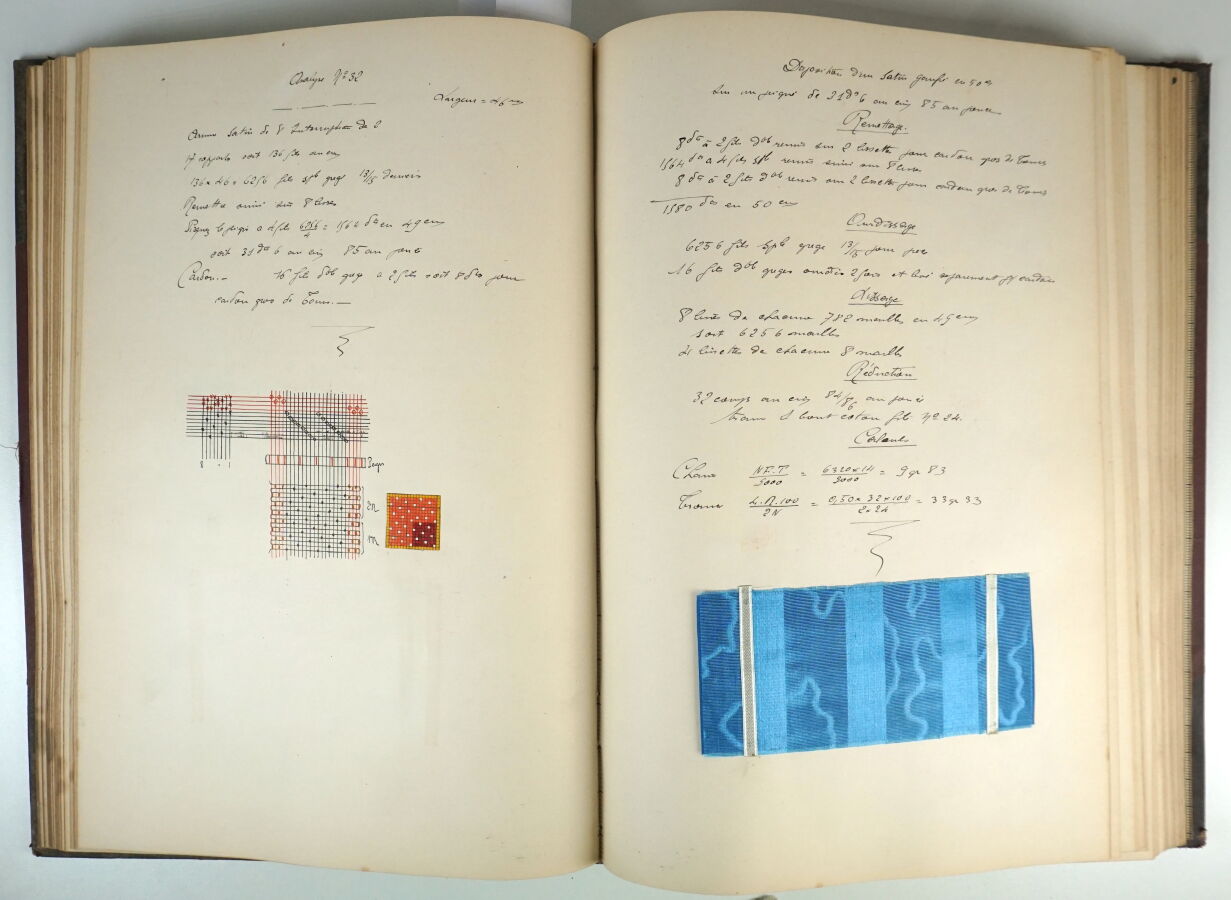 Analyse N° 32
Largeur = 46
Armure Satin de 8 Interruption de 2
17 rapports soit 136 fils au
136 × 46 = 6256 fils spl grège 13/15 deniers
Remettre suivi sur 8 lisses
Piquez le peigne à 4 fils 6256/4 = 1564 en 49 cm
soit 31 6 au cm 85 au pouce
Cordon.- 16 fils dbl grège à 2 fils soit 8 pour
cordon gros de Tours.—
8 1
Peigne
2
1
Disposition d'un Satin gaufré en 50
sur un peigne de 31 6 au cm 85 au pouce
Remettage.
8 à 2 fils dbl remis sur 2 lissettes pour cordon gros de Tours
1564 à 4 fils spl remis suivi sur 8 lisses
8 à 2 fils dbl remis sur 2 lissettes pour cordon gros de Tours
1580 en 50 cm
Ourdissage
6256 fils spl grège 13/15 pour
16 fils dbl grèges ourdies 2 fois et levé séparément cordons
Lissage
8 lisses de chacune 782 mailles en 49 cm
soit 6256 mailles
4 lissettes de chacune 8 mailles
Réduction
32 coups au cm 84/86 au pouce
trame 1 bout coton filé N° 24.
Calculs
Chaîne = 6320×14 = 9 gr 83
Trame L.R.100/2N = 0,50×32×100/2×24 = 33 gr 33